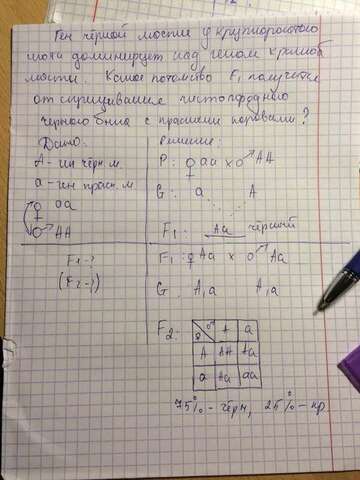 Ген чёрной масти у крупнорогатого
скота доминирует над геном красной
масти. Какое потомство F₁ получится
от скрещивания чистопородного
чёрного быка с красными коровами?
Дано: Решение:
A - ген чёрн. м. P: ♀ aa x ♂ AA
a - ген красн. м G: a A
♀ aa
♂ AA F₁: Aa чёрный
F₁-? F₁: ♀ Aa x ♂ Aa
(F₂-?) G: A, a A, a
F₂: ♀ ♂ A a
A AA Aa
a Aa aa
75% - чёрн, 25% - кр